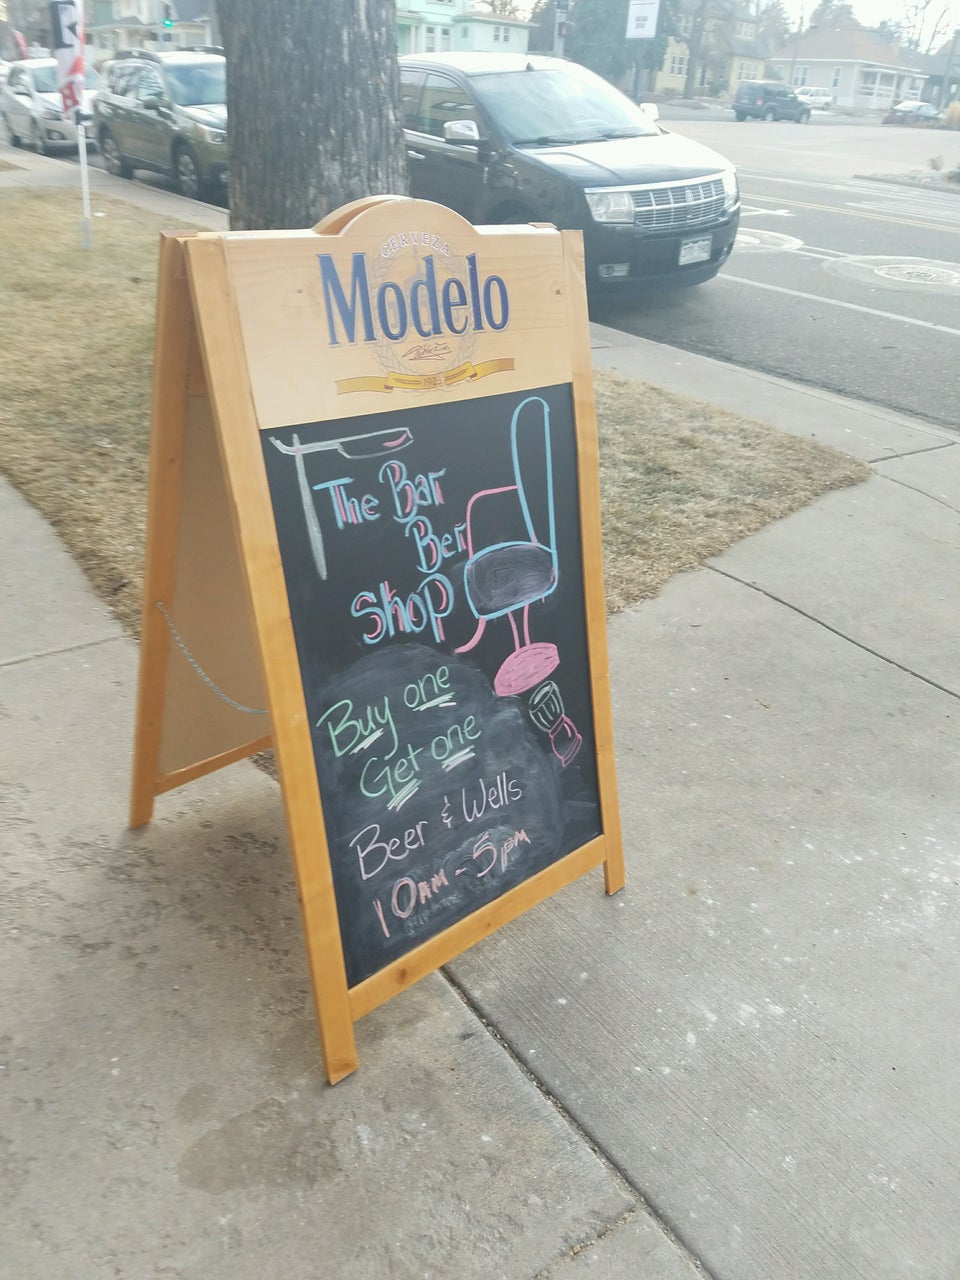 CERVEZA
Modelo
The Bar
Ber
Shop
Buy one
Get one
Beer & Wells
10AM - 5PM